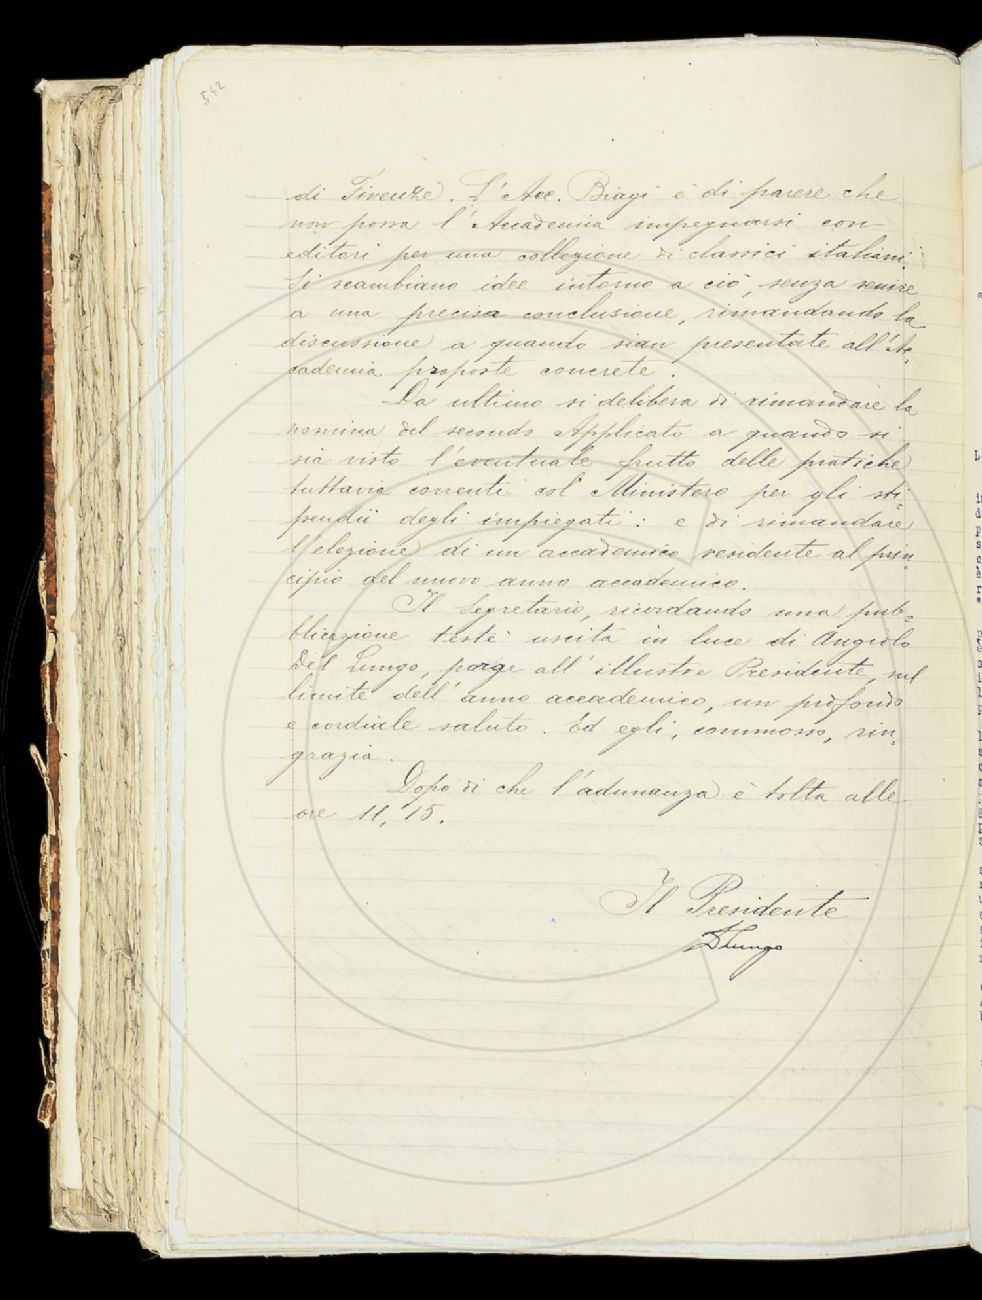 542
di Firenze. L'Acc. Biagi è di parere che
non possa l'Accademia impegnarsi con
editori per una collezione di classici italiani.
Si scambiano idee intorno a ciò, senza venire
a una precisa conclusione, rimandando la
discussione a quando sian presentate all'Ac-
cademia proposte concrete.
Da ultimo si delibera di rimandare la
nomina del secondo Applicato a quando si
sia visto l'eventuale frutto delle pratiche
tuttavia correnti col Ministero per gli sti-
pendii degli impiegati: e di rimandare
l'elezione di un accademico residente al prin-
cipio del nuovo anno accademico.
Il Segretario, ricordando una pub-
blicazione testè uscita in luce di Angiolo
Del Lungo, porge all'illustre Presidente, sul
limite dell'anno accademico, un profondo
e cordiale saluto. Ed egli, commosso, rin-
grazia.
Dopo di che l'adunanza è tolta alle
ore 11,15.
Il Presidente
DLungo